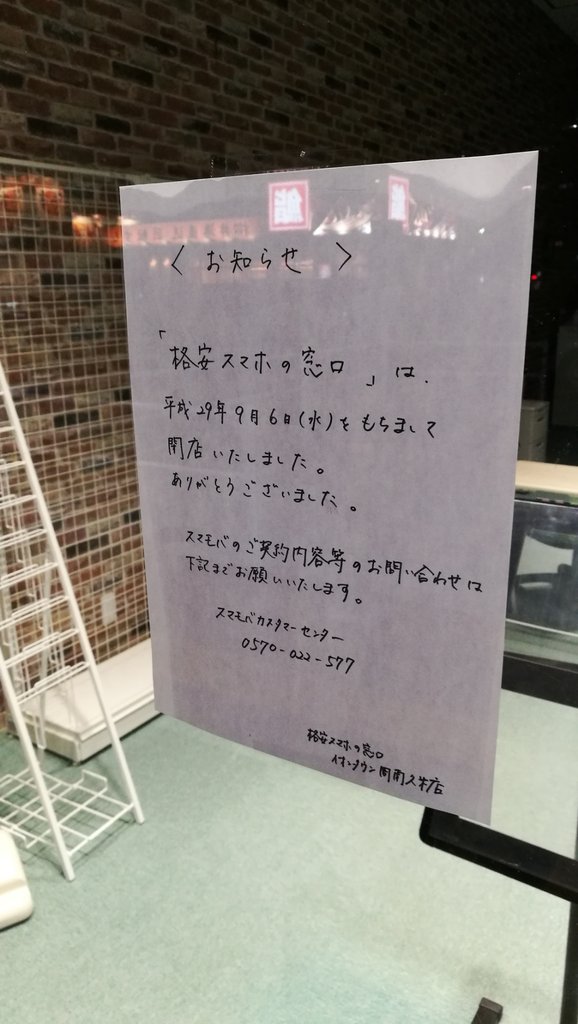 〈 お知らせ 〉
「格安スマホの窓口」は、
平成29年9月6日(水)をもちまして
閉店いたしました。
ありがとうございました。
スマモバのご契約内容等のお問い合わせは
下記までお願いいたします。
スマモバカスタマーセンター
0570-022-577
格安スマホの窓口
イオンタウン周南久米店